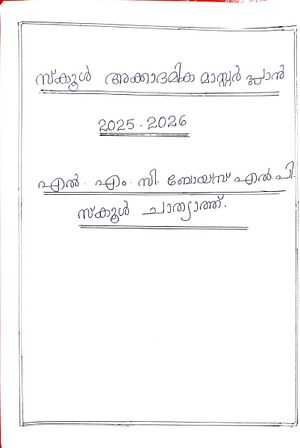 സ്കൂൾ അക്കാദമിക മാസ്റ്റർ പ്ലാൻ
2025-2026
എൽ. എം. സി. ബോയ്സ് എൽ.പി.
സ്കൂൾ ചാത്യാത്ത്.